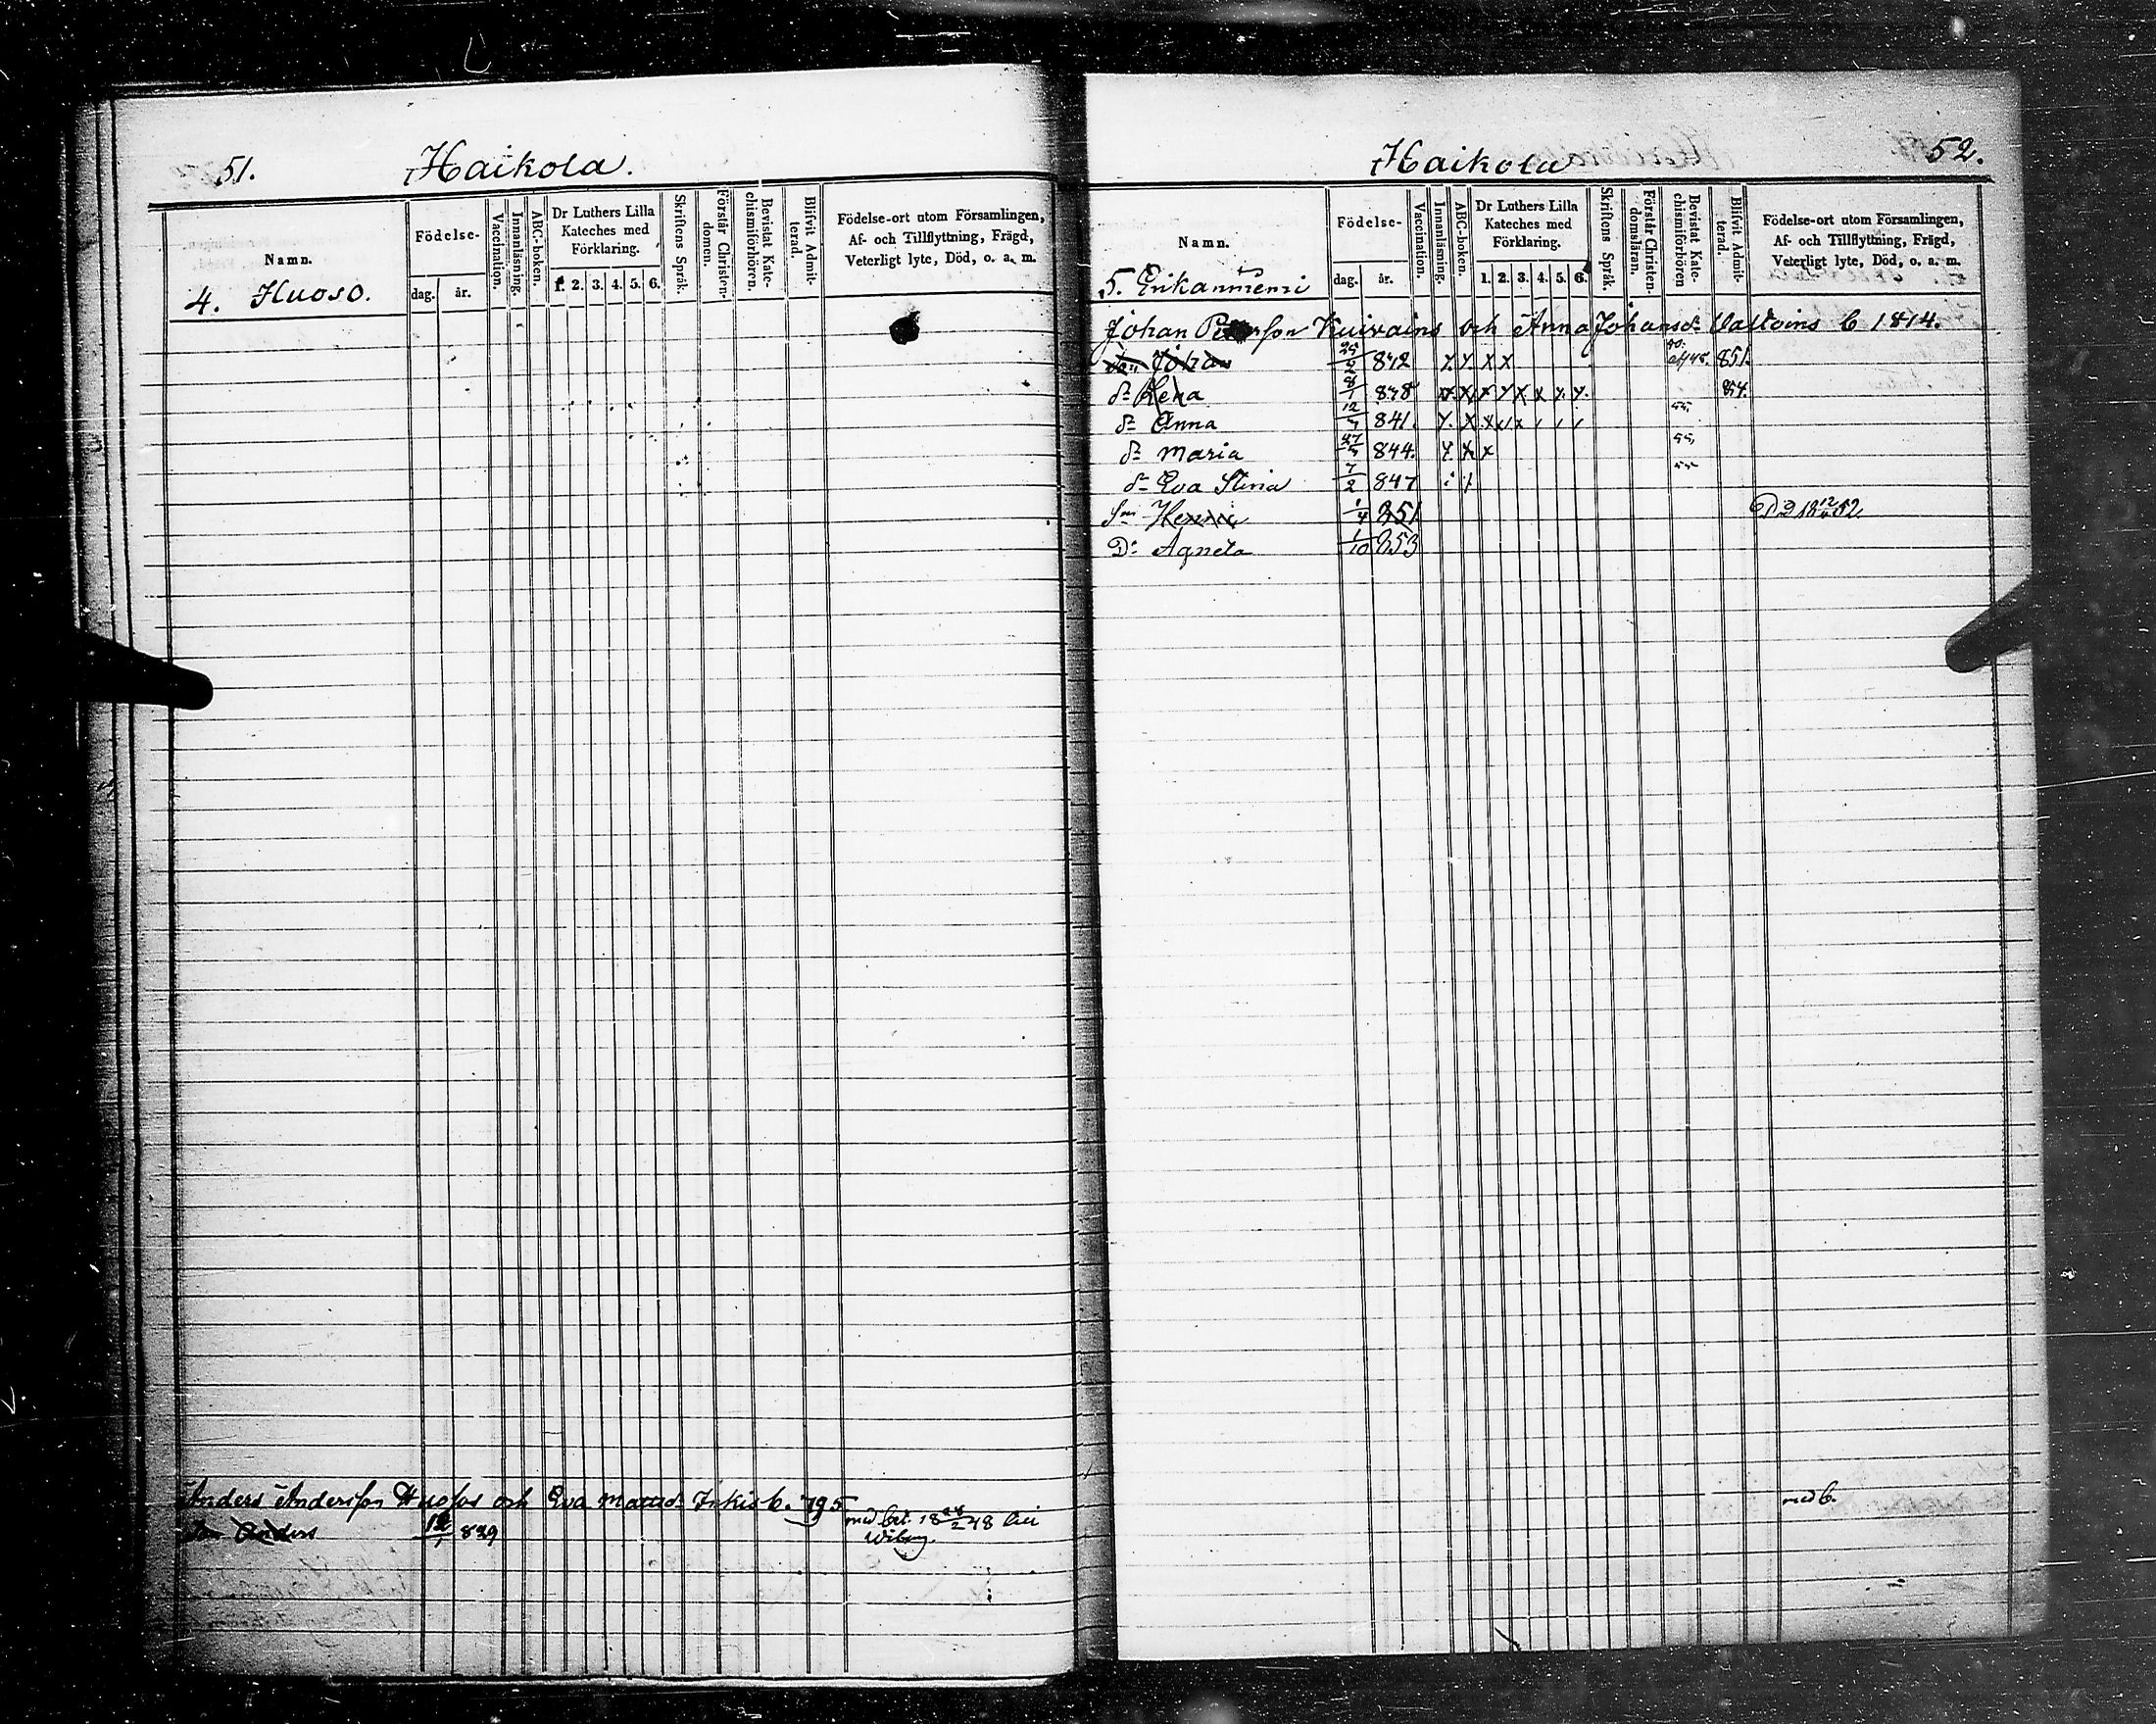 51. Haikola.
Namn.
Födelse-
dag. år.
Vaccination.
Innanläsning.
ABC-boken.
Dr Luthers Lilla Kateches med Förklaring.
1. 2. 3. 4. 5. 6.
Skriftens Språk.
Förstår Christendomen.
Bevistat Katechismiförhören.
Blifvit Admitterad.
Födelse-ort utom Församlingen,
Af- och Tillflyttning, Frägd,
Veterligt lyte, Död, o. a. m.
4. Huoso.
Anders Andersson Huosos och Eva Mattsd. b. 795
Son Anders 839
med bet. 18 48 till
Wiborg
Haikola 52.
Namn.
Födelse-
dag. år.
Vaccination.
Innanläsning.
ABC-boken.
Dr Luthers Lilla Kateches med Förklaring.
1. 2. 3. 4. 5. 6.
Skriftens Språk.
Förstår Christendomsläran.
Bevistat Katechismiförhören
Blifvit Admitterad.
Födelse-ort utom Församlingen,
Af- och Tillflyttning, Frägd,
Veterligt lyte, Död, o. a. m.
5.
Johan Kuivains och Anna Johansd. b 1814.
Johan 25/2 842 x x x x 851.
dr Lena 8/1 x x x x x x x 54.
dr Anna 841. x x x x x 55.
dr Maria 27/5 844. x x x 55.
dr Eva Stina 7/2 847 55
Sn 1/4 851 D D 18 12/4 52
Dr Agneta 1/10 853
med b.